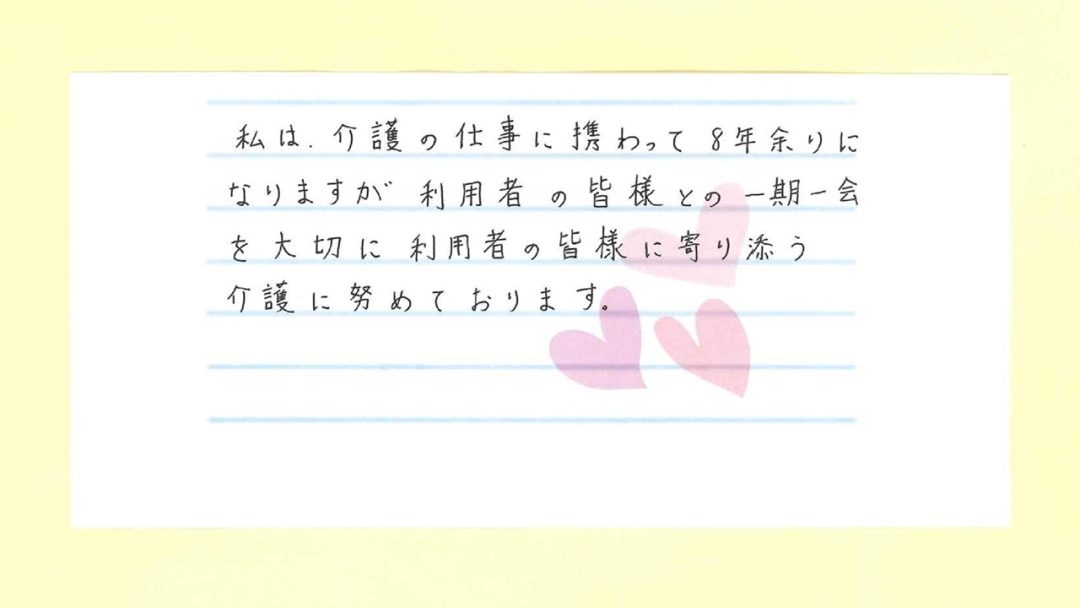 私は、介護の仕事に携わって8年余りに
なりますが 利用者の皆様との一期一会
を大切に 利用者の皆様に寄り添う
介護に努めております。